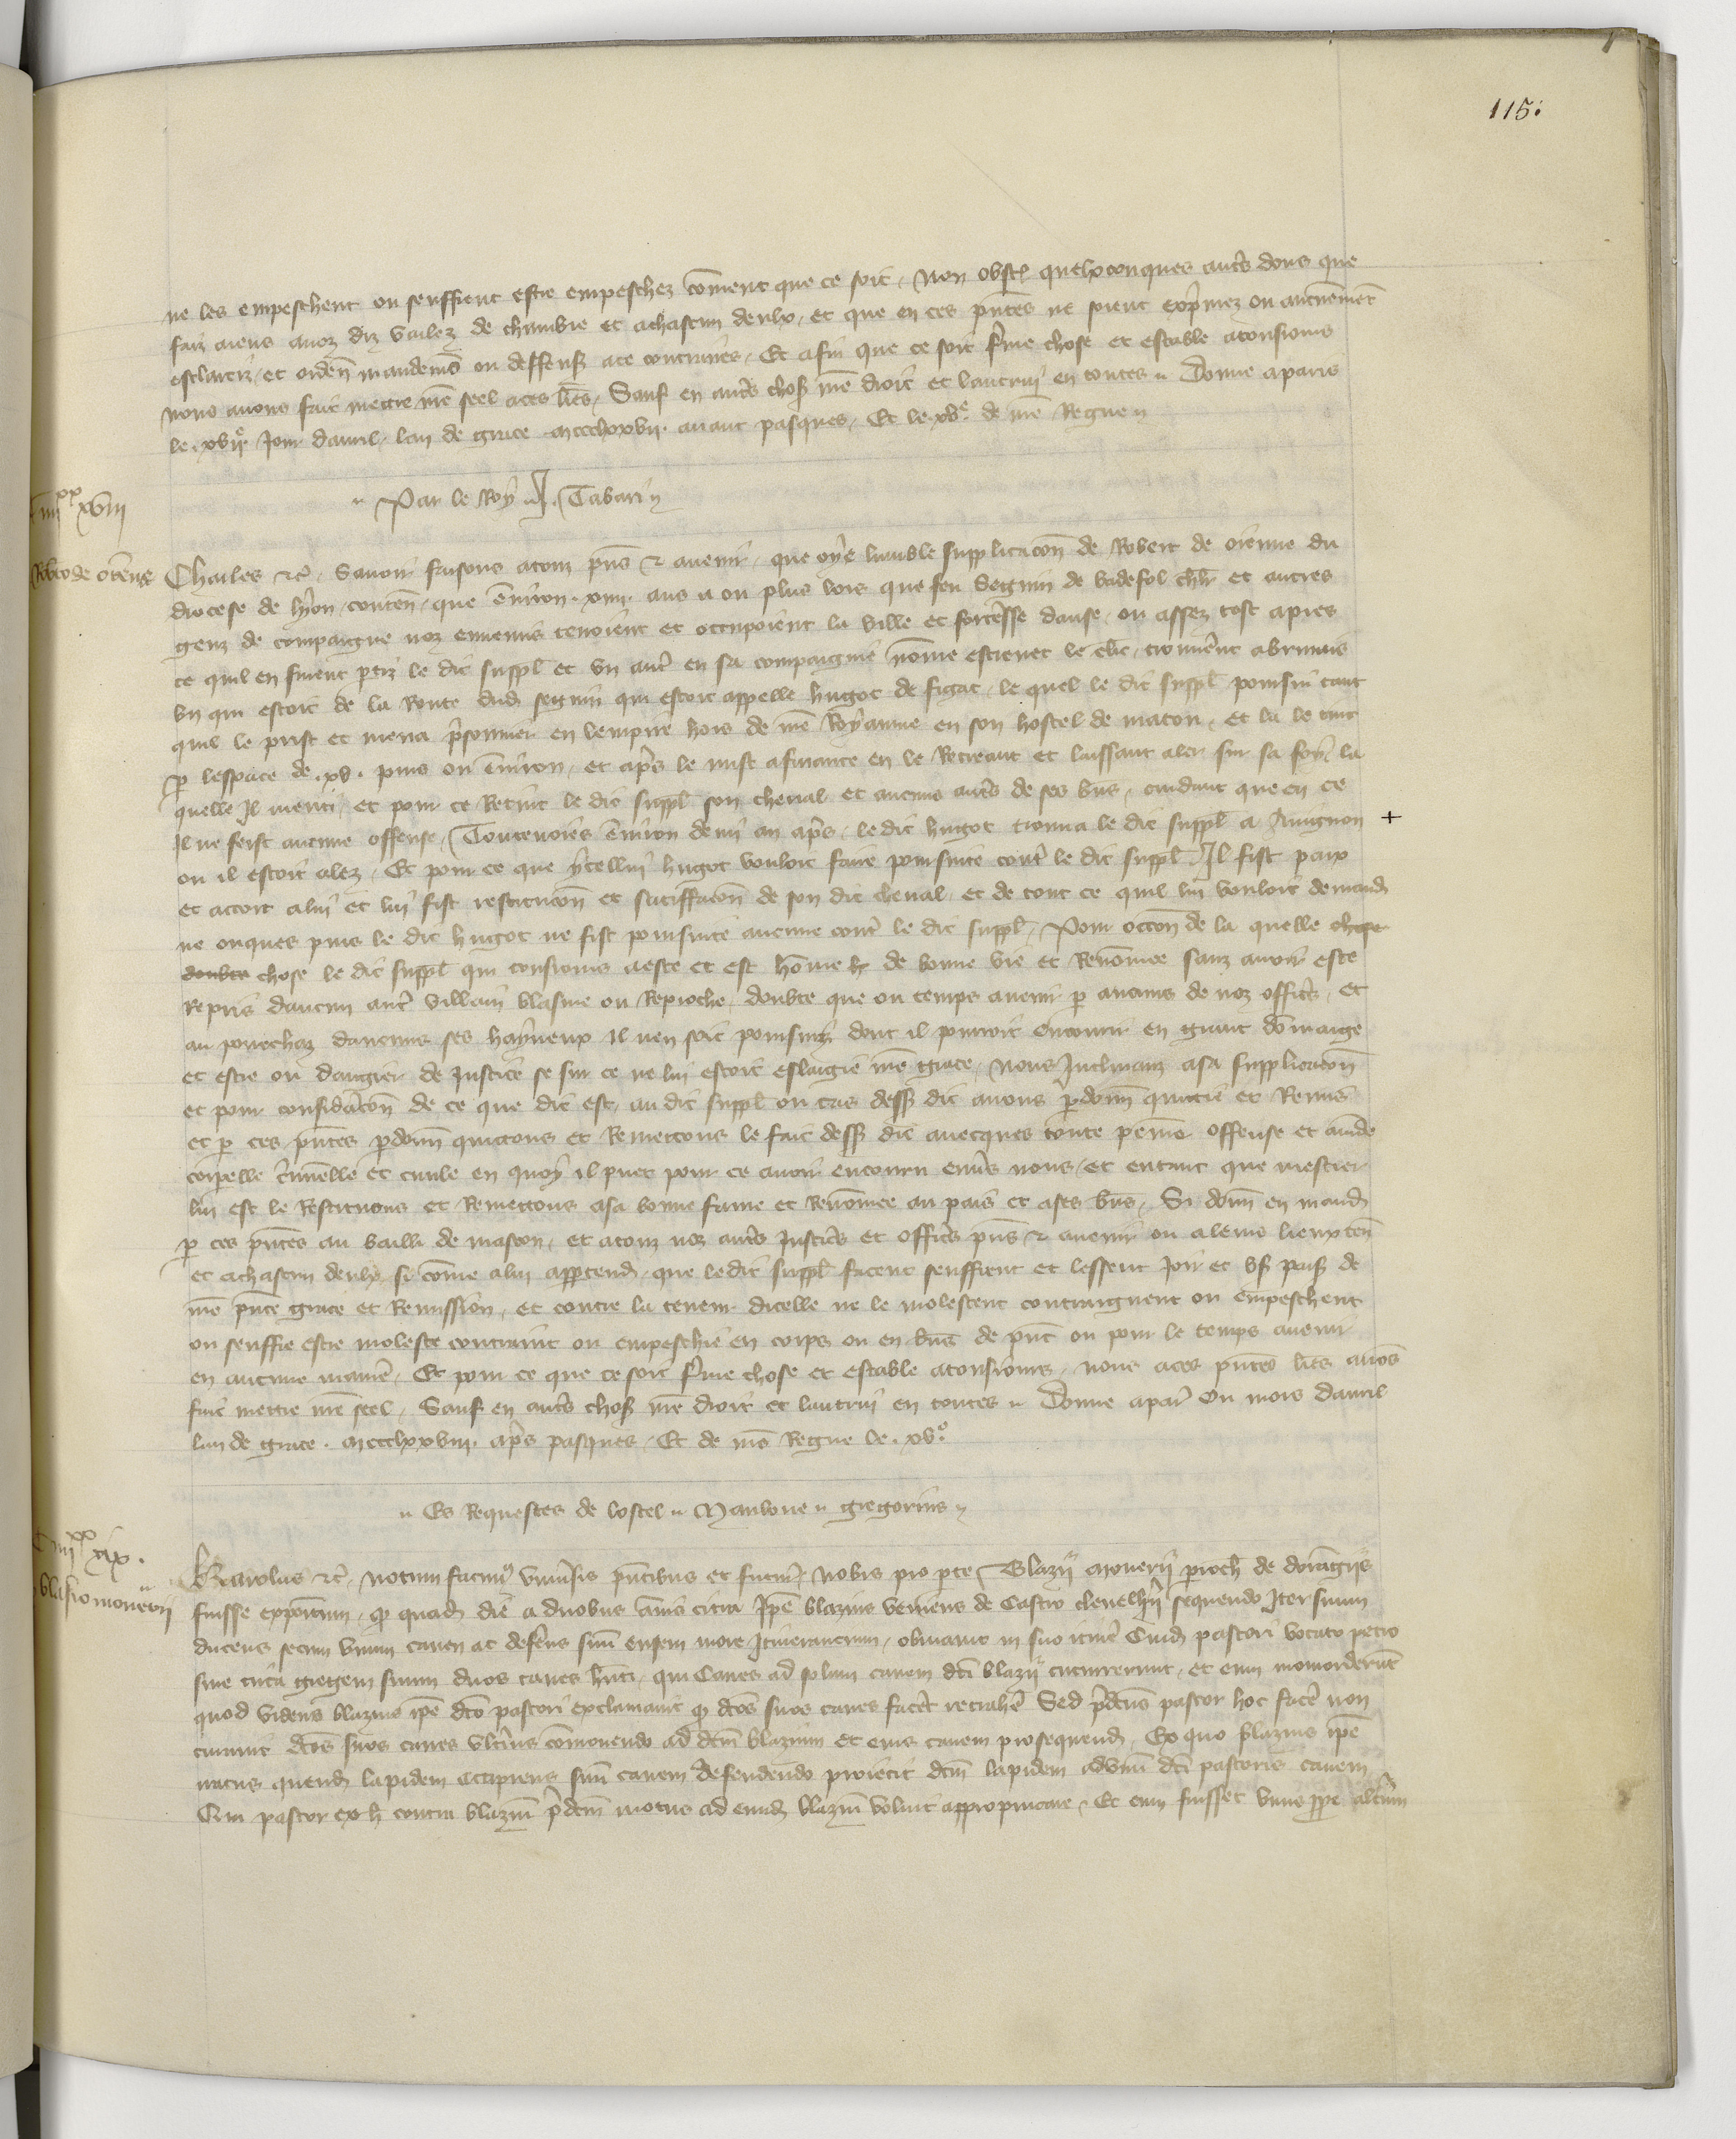 115.
ne les empeschent ou seuffrent estre empeschez coment que ce soit. Non obst quelxconques autres dons que
faiz aiens auoz diz vallez de chambre et achascun deulx, et que en ces pntes ne soient exprimez ou aucunemet
esclarciz, et orden mandemes ou deffens ace contraires. Et afin que ce soit ferme chose et estable atousiours
nous auons fait mettre nre seel aces lres, Sauf en autres choses nre droit et lautruy en toutes. Donne aparis
le xvije Jour dauril, lan de grace mccclxxvij auant pasques, Et le xve de nre Regne
Par le Roy J. Tabari
iiijxx xviij
Robto de oienne
Charles etc. Sauoir faisons atouz pns et auenir, que oye lumble supplicacon de Robert de oienne du
diocese de lyon, conten, que enuiron xiiij ans a ou plus lors que feu Seguin de badefol chlr et autres
genz de compaigne noz ennemis tenoient et occupoient la ville et forteresse danse, ou assez tost apres
ce quil en furent ptiz le dit suppl et vn autre en sa compaignie nome estienet le clerc, trouuerent abrinais
vn qui estoit de la Route dud seguin qui estoit appelle hugot de figac, le quel le dit suppl poursui tant
quil le prist et mena prisonnier en lempire hors de nre Royaume en son hostel de maton, et la le tint
p lespace de xv. jours ou enuiron, et apres le mist afinance en le Recreant et laissant aler sur sa foy, la
quelle Il menti, et pour ce Retint le dit suppl son cheual et aucuns autres de ses biens, cuidant que en ce
Il ne feist aucune offense, Toutevoies enuiron demi an apres, le dit hugot trouua le dit suppl a Auignon +
ou il estoit alez. Et pour ce que ycellui hugot vouloit faire poursuite contre le dit suppl Il fist paix
et accort alui et lui fist restitucon et satiffacon de son dit cheual et de tout ce quil lui vouloit demander
ne onques puis le dit hugot ne fist poursuite aucune contre le dit suppl. Pour occon de la quelle chose
doubte chose le dit suppl qui tousiours a este et est home de bonne vie et Renomee sanz auoir este
Repris daucun autre villain blasme ou Reproche, doubte que ou temps auenir p aucuns de noz officrs, et
au pourchaz daucuns ses hayneux Il nen soit poursuiz dont il pourroit encourir en grant domaige
et estre ou dangier de Justice se sur ce ne lui estoit eslargie nre grace, Nous Inclinanz asa supplicacon
et pour consideracon de ce que dit est, au dit suppl ou cas dess dit auons pdonn quittie et Remis
et p ces pntes pdonn quittons et Remettons le fait dess dit auecques toute peine offense et amde
corpelle criminelle et ciuile en quoy il puet pour ce auoir encouru enuers nous, et entant que mestier
lui est le Restituons et Remettons asa bonne fame et Renomee au pais et ases biens. Si donn en mand
p ces pntes au bailli de mascon, et atouz noz autres Justiciers et officrs pns et auenir ou aleurs lieuxten
et achascun deulx, si come alui appartend, que le dit suppl facent seuffrent et lessent Joir et vser paisiblement de
nre pnte grace et Remission, et contre la teneur dicelle ne le molestent contraignent ou empeschent
ou seuffre estre moleste contraint ou empeschie en corps ou en biens de pnt ou pour le temps auenir
en aucune maniere. Et pour ce que ce soit ferme chose et estable atousiours, nous aces pntes lres auons
fait mettre nre seel, Sauf en autres choses nre droit et lautruy en toutes. Donne apar Ou mois dauril
lan de grace. mccclxxviij. apres pasques, Et de nre Regne le xve.
Es Requestes de lostel Manlone gregorius
C iiijxx xix.
blasio mouerii
Karolus etc, Notum facimus vniuersis pntibus et futuris, Nobis pro pte Blazii Mouerii proch de
fuisse expositum, q quad die a duobus annis citra Ipe blazius veniens de Castro sequendo Iter suum
ducens secum vnum canem ac deferens suum ensem more Itinerantium, obuiauit in suo itinere Cuid pastori vocato petro
siue circa gregem suum duos canes hnti, qui Canes ad solum canem dci blazii cucurrerunt, et eum momorderunt
quod videns blazius ipe dco pastori exclamauit q dcos suos canes faceret retrahere Sed predcus pastor hoc facere non
curauit dcos suos canes vlterius comouendo ad dcm blazium et eius canem prosequend, Ex quo blazius ipe
iratus quend lapidem accipiens suum canem defendendo proiecit dcm lapidem aduersus dci pastoris canem
Cum pastor ex h contra blazium predcm motus ad eund blazium voluit appropincare, Et cum fuisset vnus prope alterum